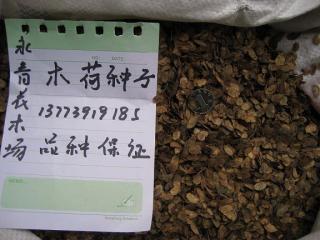 永青花木场
木荷种子
13773919185
品种保证